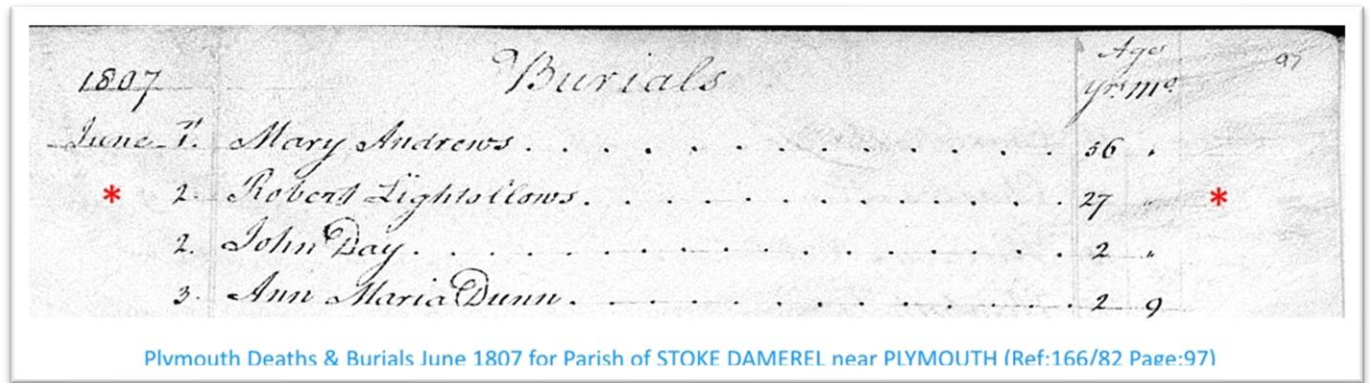 Age
1807 Burials yrs mo 97
June 1st. Mary Andrews. . . . . . . . . . . . . 56 "
* 2. Robert Lightollows. . . . . . . . . . . . . 27 " *
2. John Day. . . . . . . . . . . . . . . 2 "
3. Ann Maria Dunn. . . . . . . . . . . . 2 9
Plymouth Deaths & Burials June 1807 for Parish of STOKE DAMEREL near PLYMOUTH (Ref:166/82 Page:97)